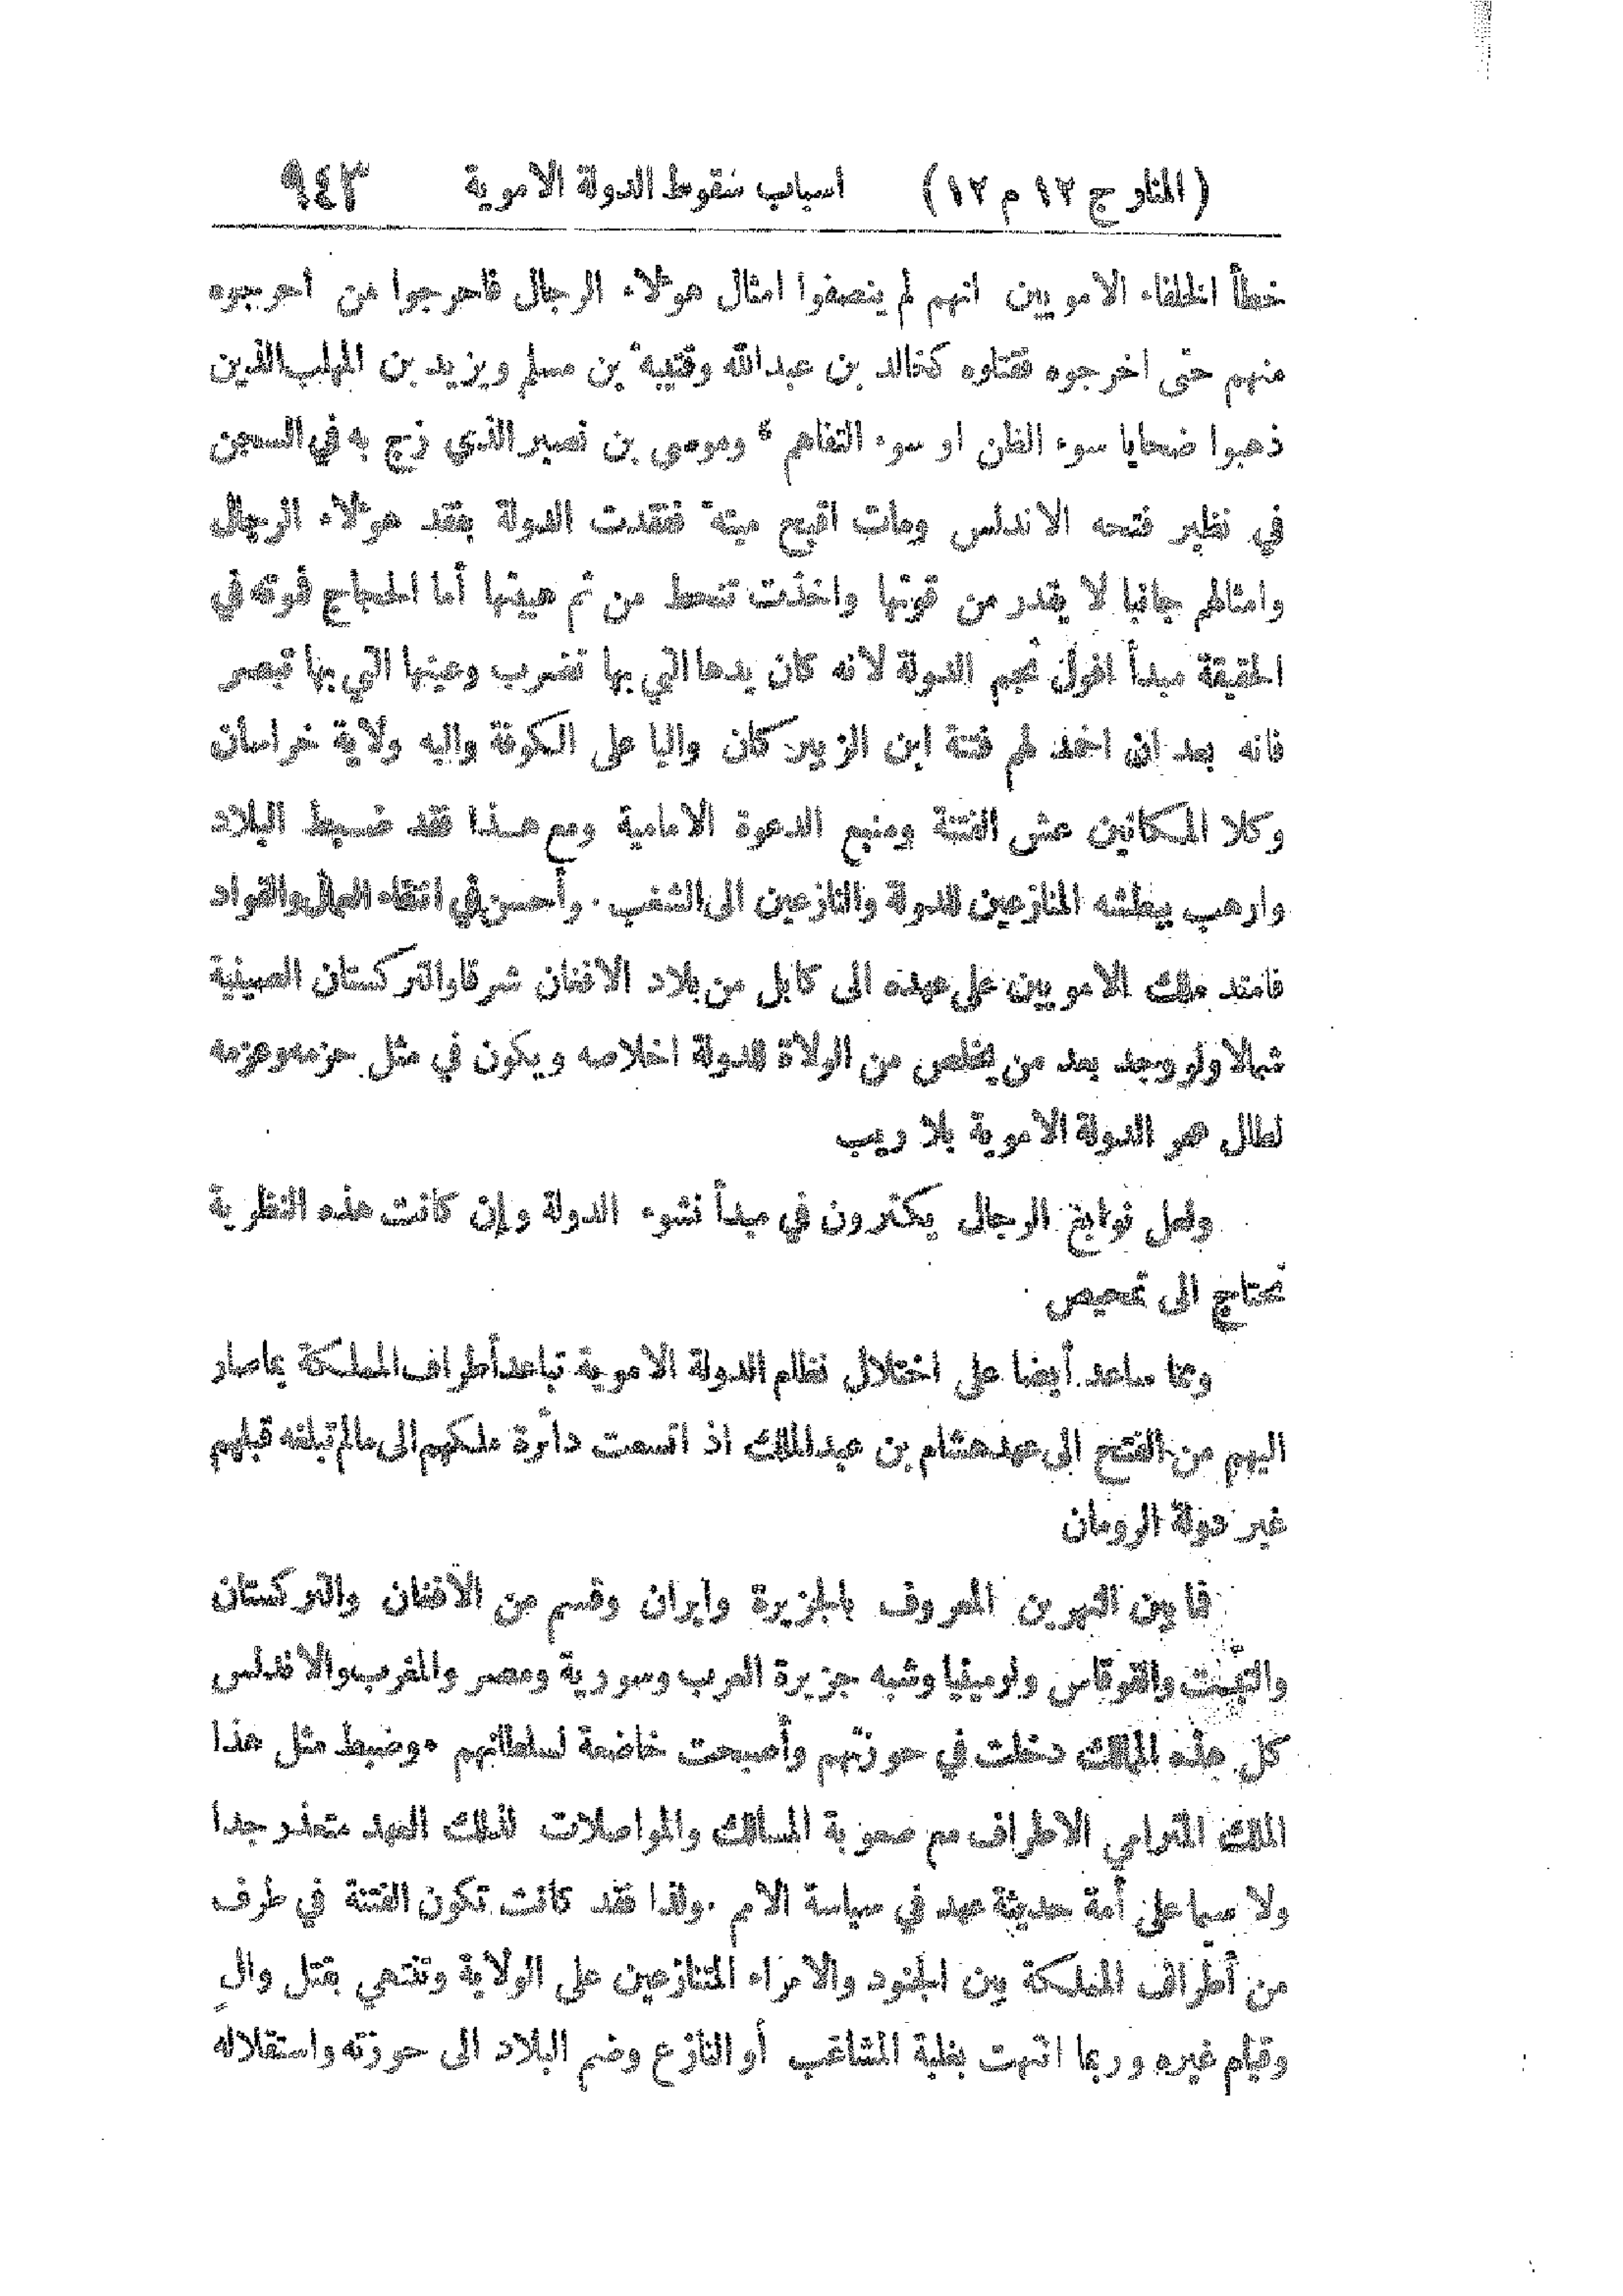 (المنار ج ١٢ م ١٢) اسباب سقوط الدولة الاموية ٩٤٣
خطأ الخلفاء الامويين انهم لم ينصفوا امثال هوٴلاء الرجال فاحرجوا من احرجوه
منهم حتى اخرجوه فقتلوه كخالد بن عبدالله وقتيبة بن مسلم ويزيد بن المهلب الذين
ذهبوا ضحايا سوء الظن او سوء التفاهم ، وموسى بن نصير الذي زج به في السجن
في نظير فتحه الاندلس ومات اقبح ميتة ففقدت الدولة بفقد هوٴلاء الرجال
وامثالهم جانبا لا يقدر من قوتها واخذت تنحط من ثم هيبتها أما الحجاج فموته في
الحقيقة مبدأ افول نجم الدولة لانه كان يدها التي بها تضرب وعينها التي بها تبصر
فانه بعد ان اخمد لهم فتنة ابن الزبير كان واليا على الكوفة واليه ولاية خراسان
وكلا المكانين عش الفتنة ومنبع الدعوة الامامية ومع هذا فقد ضبط البلاد
وارهب ببطشه المنازعين للدولة والنازعين الى الشغب . وأحسن في انتقاء العمال والقواد
فامتد ملك الامويين على عهده الى كابل من بلاد الافغان شرقا والتركستان الصينية
شمالا ولو وجد بعد من يخلص من الولاة للدولة اخلاصه ويكون في مثل حزمه وعزمه
لطال عمر الدولة الاموية بلا ريب
ولعل نوابغ الرجال يكثرون في مبدأ نشوء الدولة وإن كانت هذه النظرية
تحتاج الى تمحيص
ومما ساعد أيضا على اختلال نظام الدولة الاموية تباعد أطراف المملكة بما صار
اليهم من الفتح الى عهد هشام بن عبد الملك اذ اتسعت دائرة ملكهم الى ما لم تبلغه قبلهم
غير دولة الرومان
فما بين النهرين المعروف بالجزيرة وايران وقسم من الأفغان والتركستان
والتبت والقوقاس وارمينيا وشبه جزيرة العرب وسورية ومصر والمغرب والاندلس
كل هذه الممالك دخلت في حوزتهم وأصبحت خاضعة لسلطانهم . وضبط مثل هذا
الملك المترامي الاطراف مع صعوبة المسالك والمواصلات لذلك العهد متعذر جدا
ولا سيما على أمة حديثة عهد في سياسة الامم . ولذا فقد كانت تكون الفتنة في طرف
من أطراف المملكة بين الجنود والامراء المتنازعين على الولاية وتنتهي بقتل والٍ
وقيام غيره وربما انتهت بغلبة المشاغب أو النازع وضم البلاد الى حوزته واستقلاله